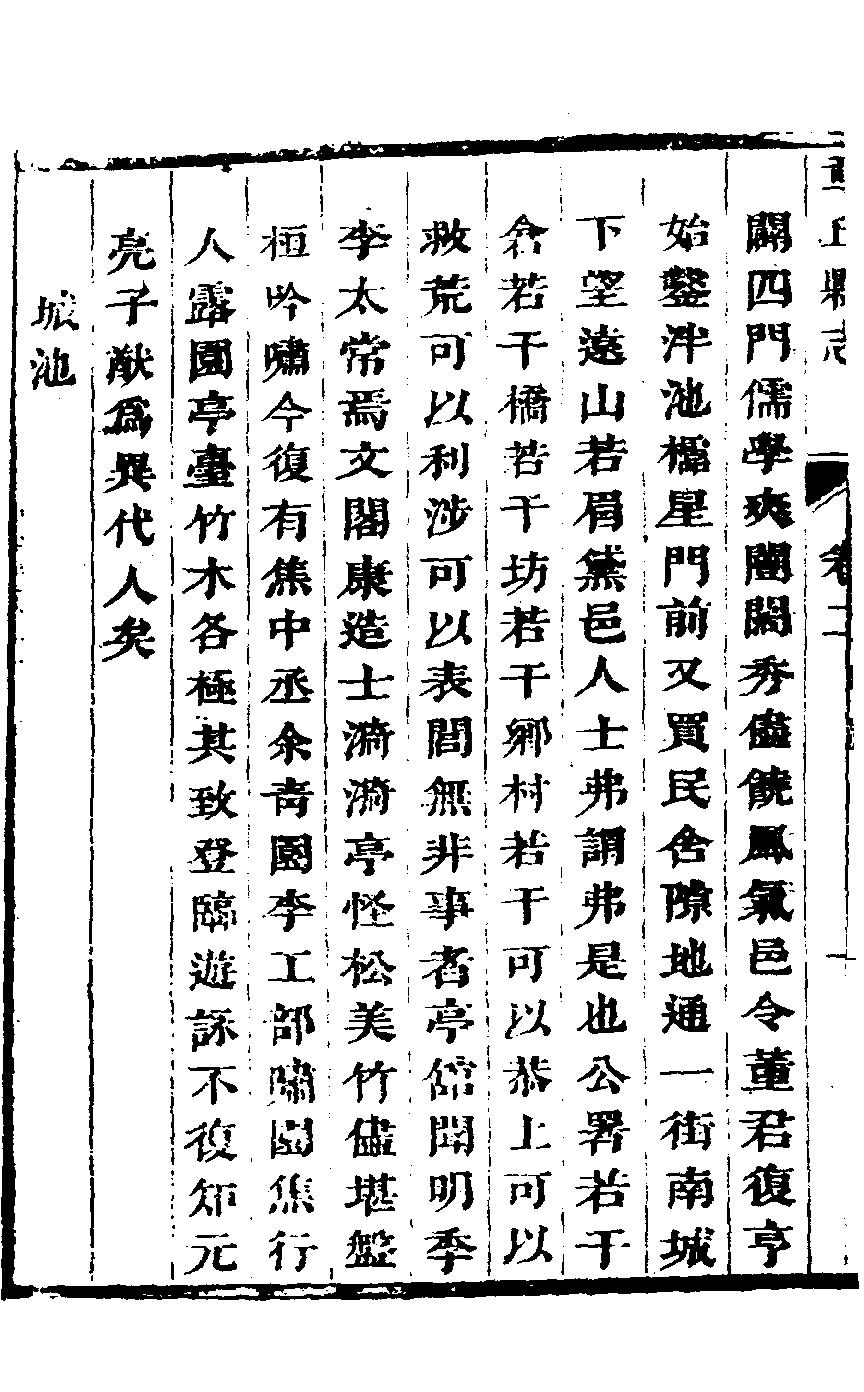 章丘縣志 卷二
闢四門儒學爽闓閎秀儘饒風氣邑令董君復亨
始鑿泮池櫺星門前又買民舍隙地通一街南城
下望遠山若眉黛邑人士弗謂弗是也公署若干
倉若干橋若干坊若干鄉村若干可以恭上可以
救荒可以利涉可以表閭無非事者亭館聞明季
李太常焉文閣康造士漪漪亭怪松美竹儘堪盤
桓吟嘯今復有焦中丞余青園李工部嘯園焦行
人露園亭臺竹木各極其致登臨遊詠不復知元
亮子猷為異代人矣
城池